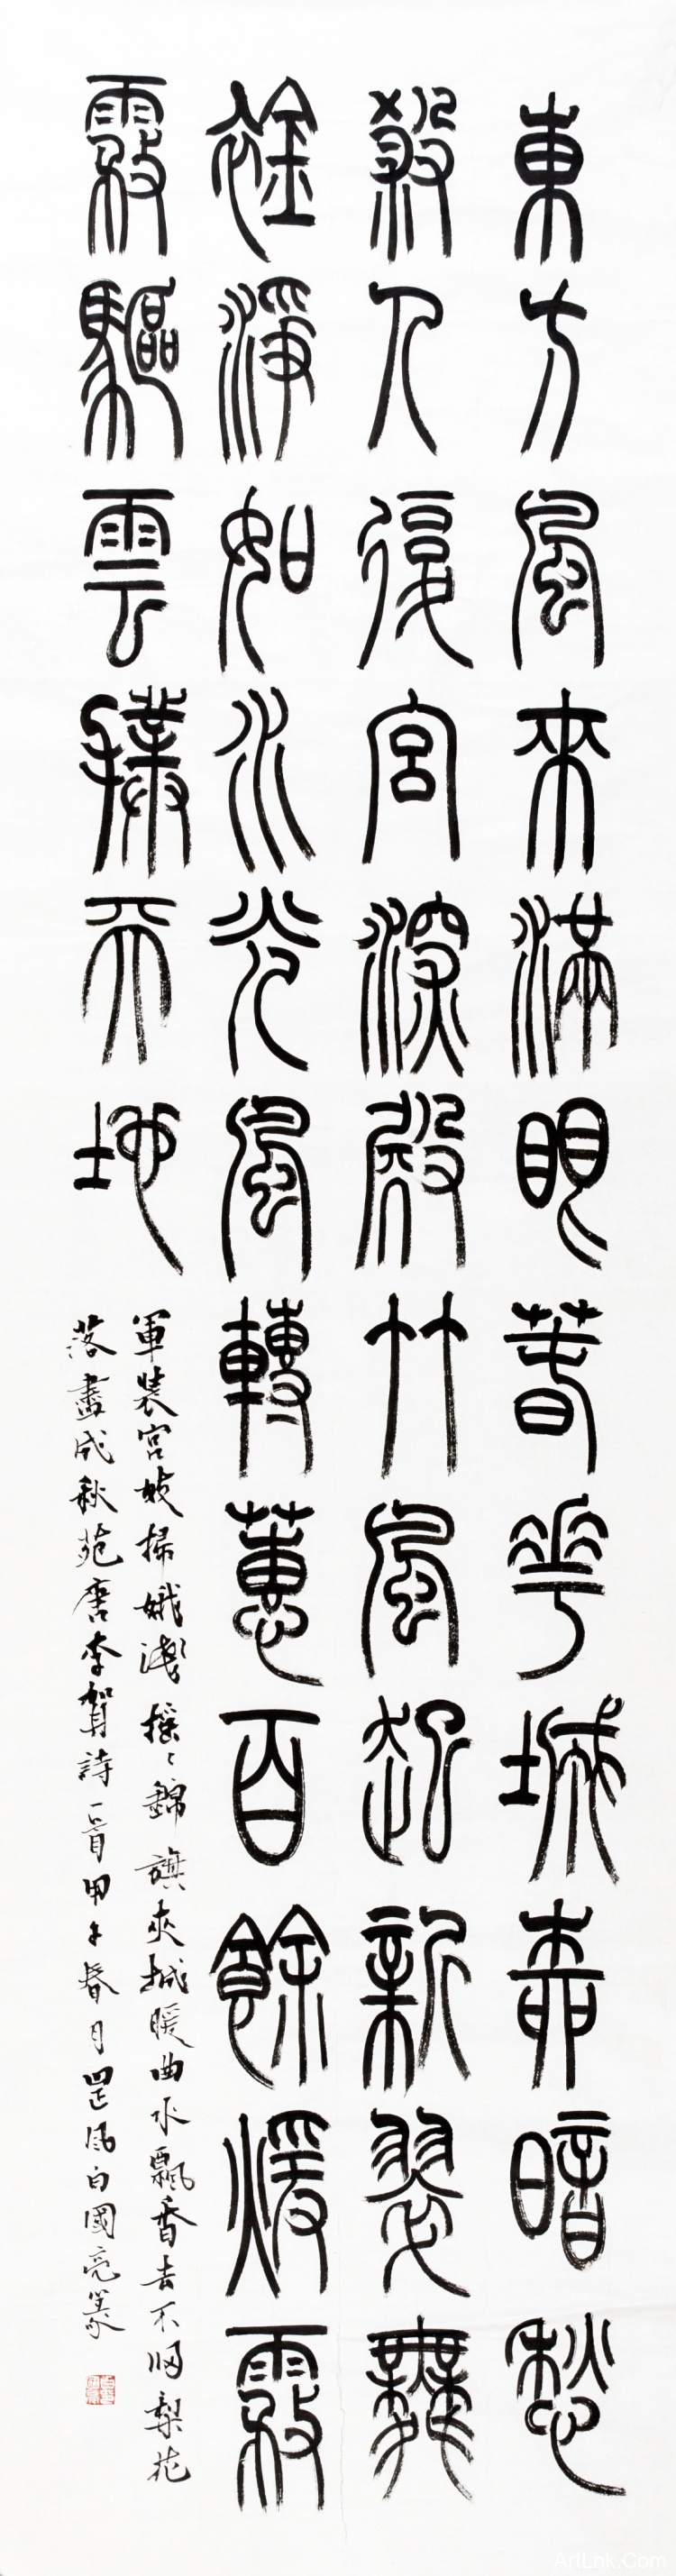 東方風來滿眼春華城柳暗愁
殺人復宮深殿竹風起新翠舞
衿淨如水光風轉蕙百餘煖霧
霧驅雲撲天地
軍裝宮妓掃娥淺搖〻錦旗夾城暖曲水飄香去不歸梨花
落盡成秋苑唐李賀詩一首甲午春月罡風白國亮篆
ArtLnk.Com